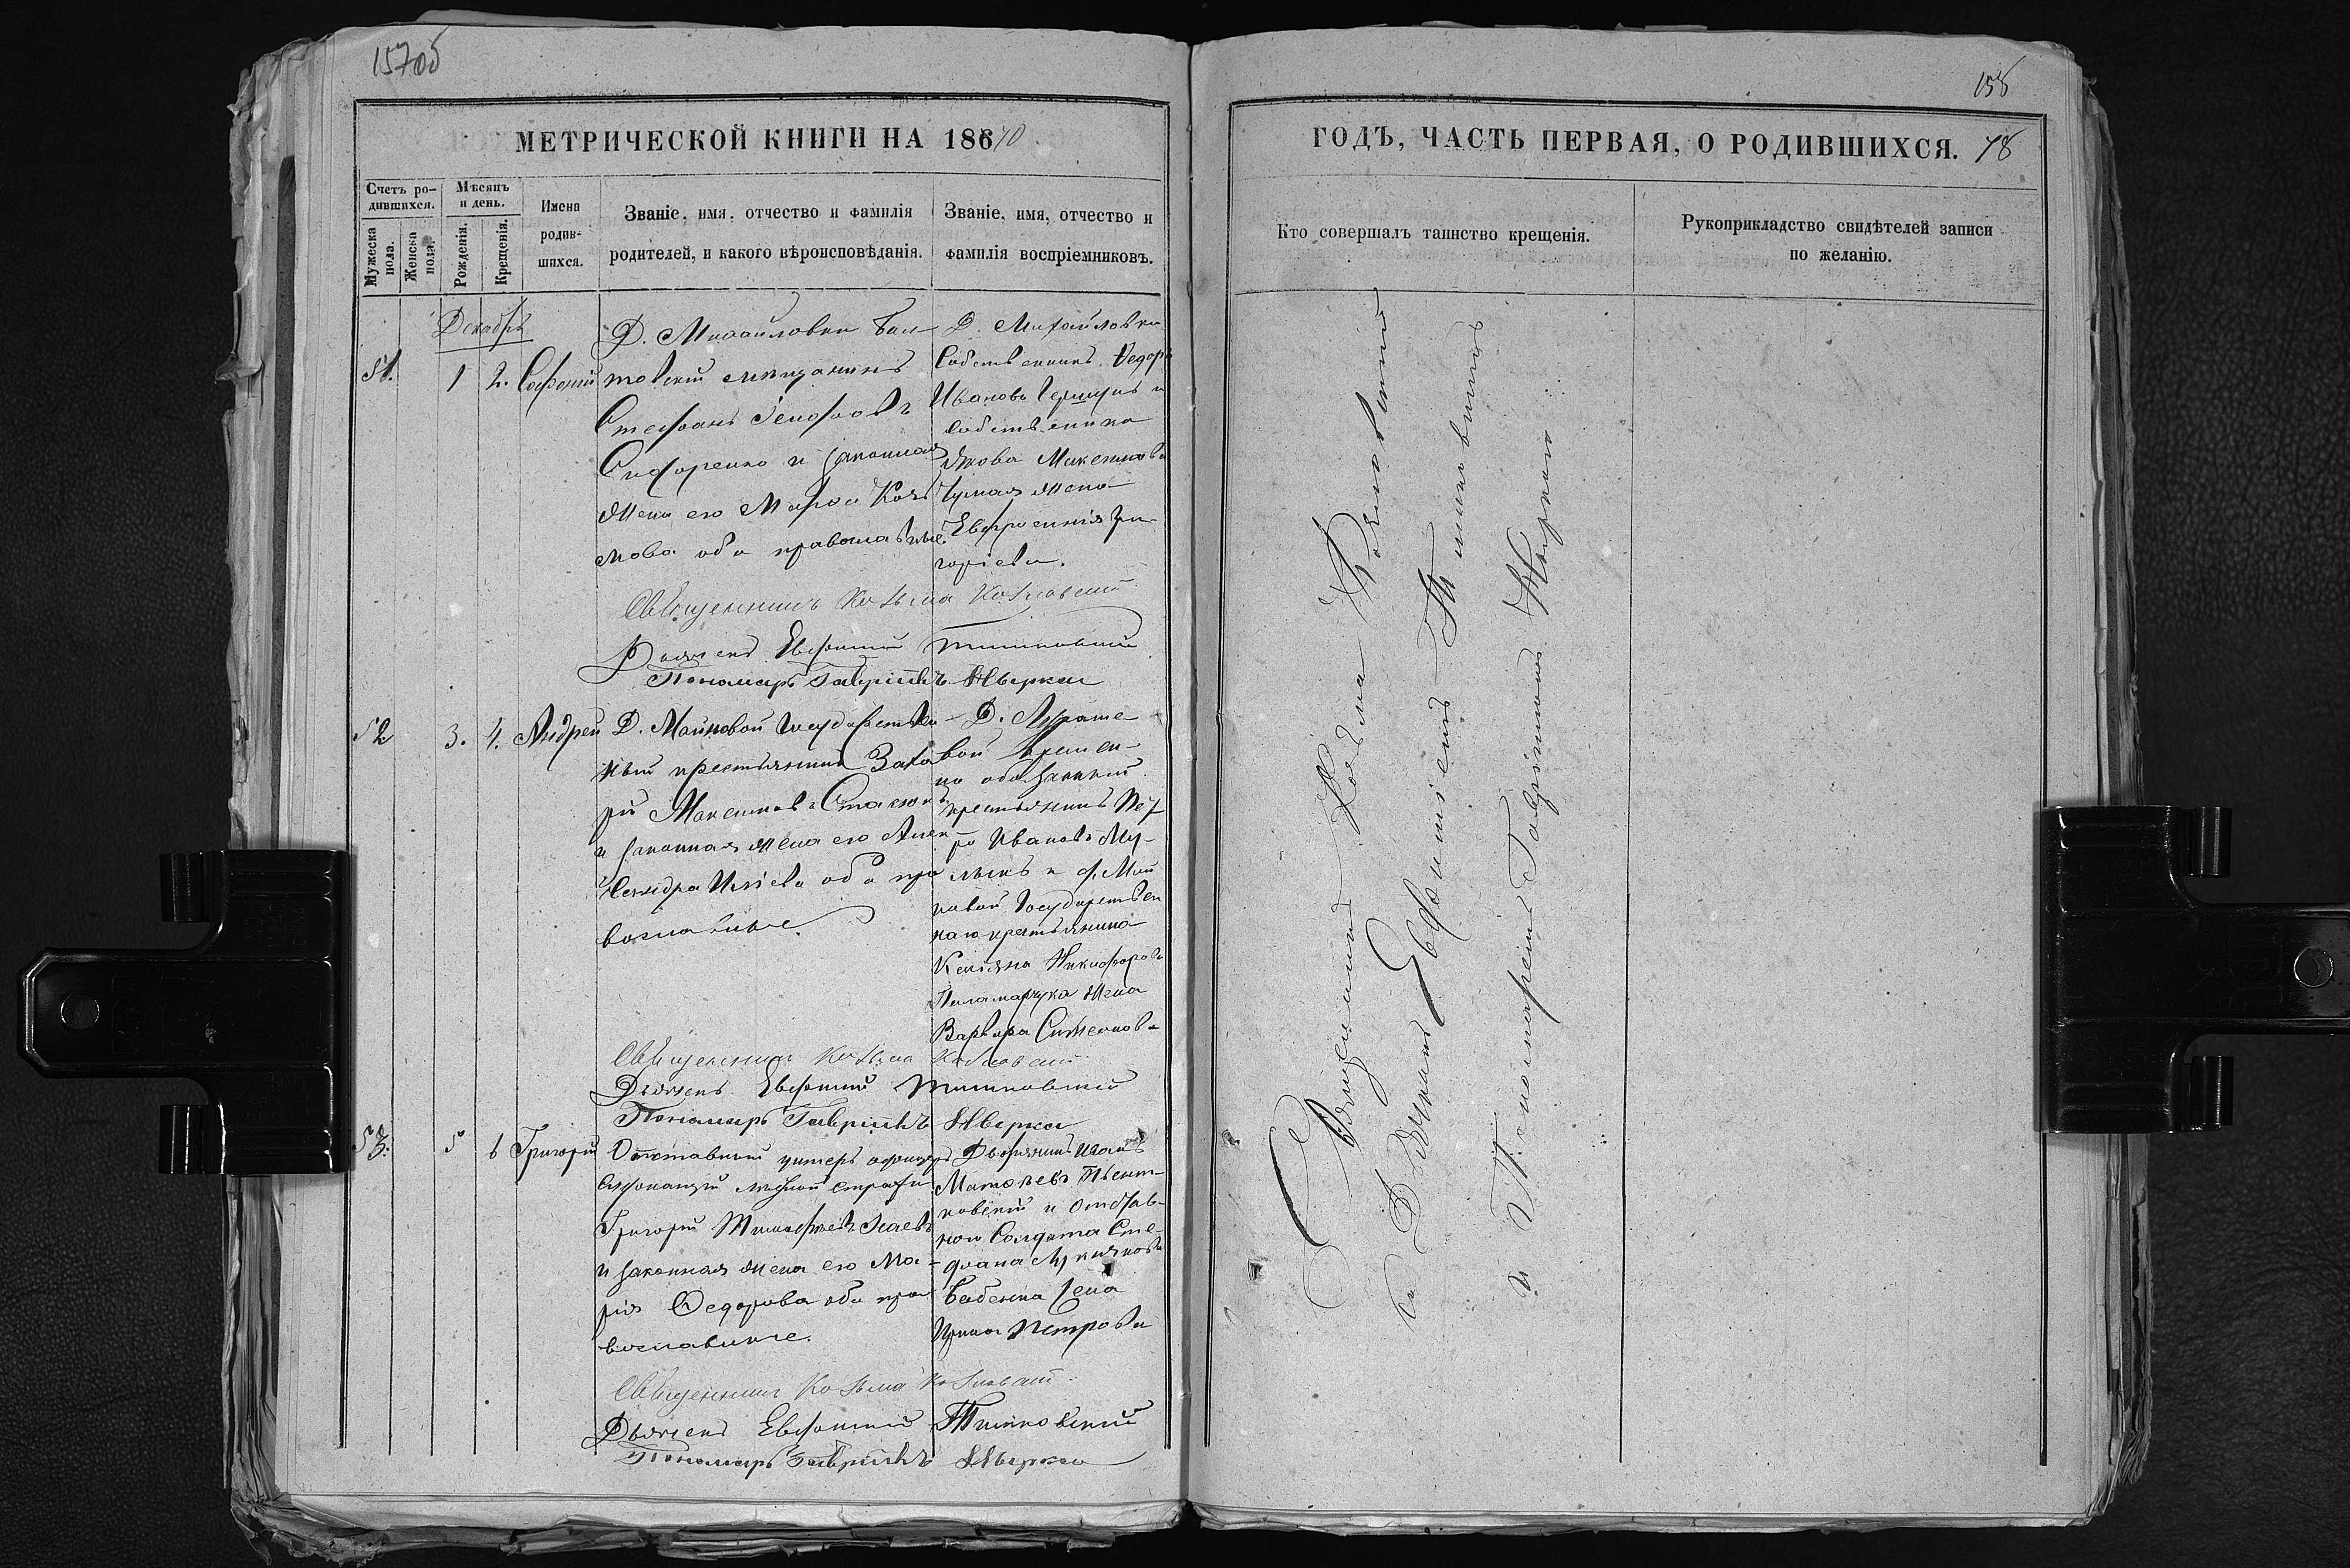 157об
МЕТРИЧЕСКОЙ КНИГИ НА 18670
Счетъ ро-
дившихся.
Мужеска
пола.
Женска
пола.
Мѣсяцъ
и день.
Рожденія.
Крещенія.
Имена
родив-
шихся.
Званіе, имя, отчество и фамилія
родителей, и какого вѣроисповѣданія.
Званіе, имя, отчество и
фамилія воспріемниковъ.
Декабрь
51.
1
2.
Софоній
Д. Михайловки Бал-
товскій мѣщанинъ
Стефанъ
Сидоренко и законная
жена его Марѳа Козь
мова оба православные.
Д. Михайловки
Собственникъ Ѳедоръ
Ивановъ и
собственника
Якова
жена
Евфросинія Гри-
горіева.
Священникъ Козьма Козловскій
Дьячекъ Евфимій Тишковскій
Пономарь Гавріилъ Жверко
52
3.
4.
Андрей
Д. Майновой Государствен-
ный крестьянинъ Заха
рій Максимовъ
и законная жена его Алек-
сандра Иліева оба пра
вославные.
Д.
вой времен-
но обязанный
крестьянинъ Пет
ръ Ивановъ Му-
и д. Май
новой Государствен
наго крестьянина
Никифорова
Паламарчука жена
Варвара Симеонова
Священникъ Козьма Козловскій
Дьячекъ Евфимій Тишковскій
Пономарь Гавріилъ Жверко
53.
5
6
Григорій
Отставный унтеръ офицеръ
стражи
Григорій Тимофеевъ
и законная жена его Ма-
рія Ѳедорова оба пра
вославные.
Дворянинъ Иванъ
ковскій и отстав-
ного Солдата Сте-
фана
Бабенка жена
Ирина Петрова
Священникъ Козьма Козловскій.
Дьячекъ Евфимій Тишковскій
Пономарь Гавріилъ Жверко
158
ГОДЪ, ЧАСТЬ ПЕРВАЯ, О РОДИВШИХСЯ. 78
Кто совершалъ таинство крещенія.
Рукоприкладство свидѣтелей записи
по желанію.
Священникъ Козьма Козловскій
съ Дьячкомъ Евфиміемъ Тишковскимъ
и Пономаремъ Гавріиломъ